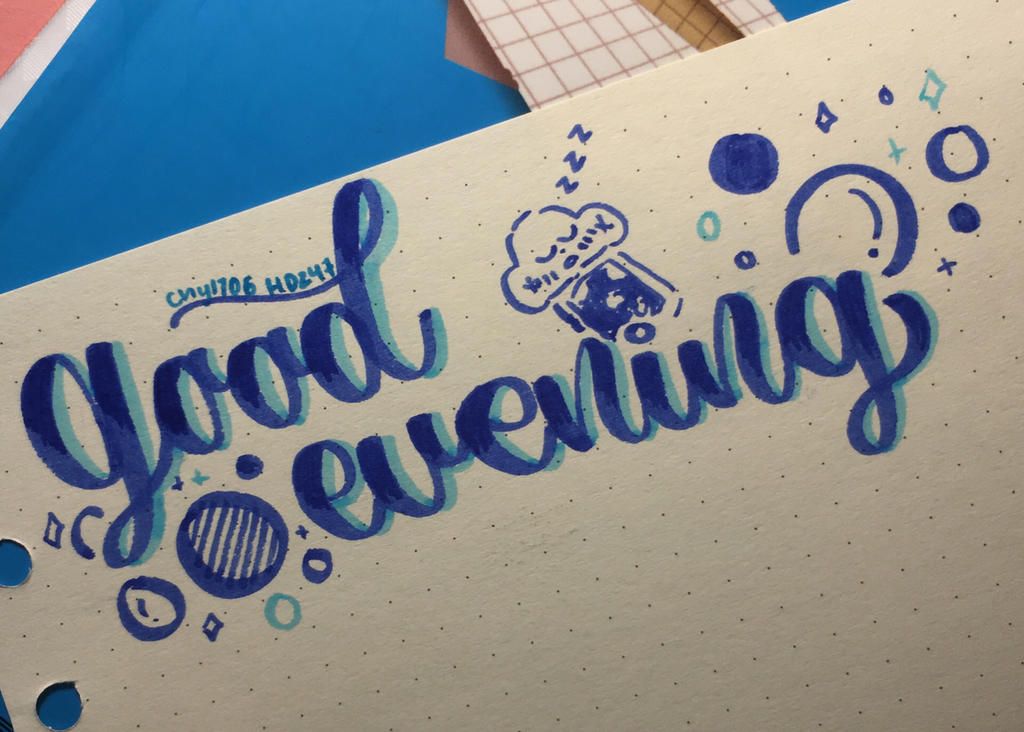 zzz
chy1706 HD247
good
evening